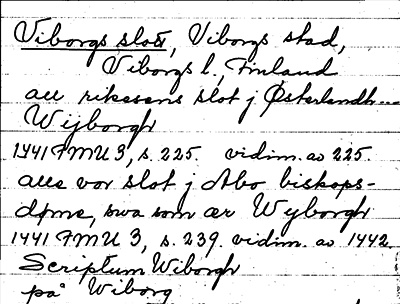 Viborgs slott, Viborgs stad,
Viborgs l., Finland
all rikesens slot j Østerlandh...
Wyborgh
1441 FMU 3, s. 225. vidim. av 225.
alle vor slot j Abo biskops-
døme, swa som ær Wyborgh
1441 FMU 3, s. 239. vidim. av 1442.
Scriptum Wiborgh
på Wiborg